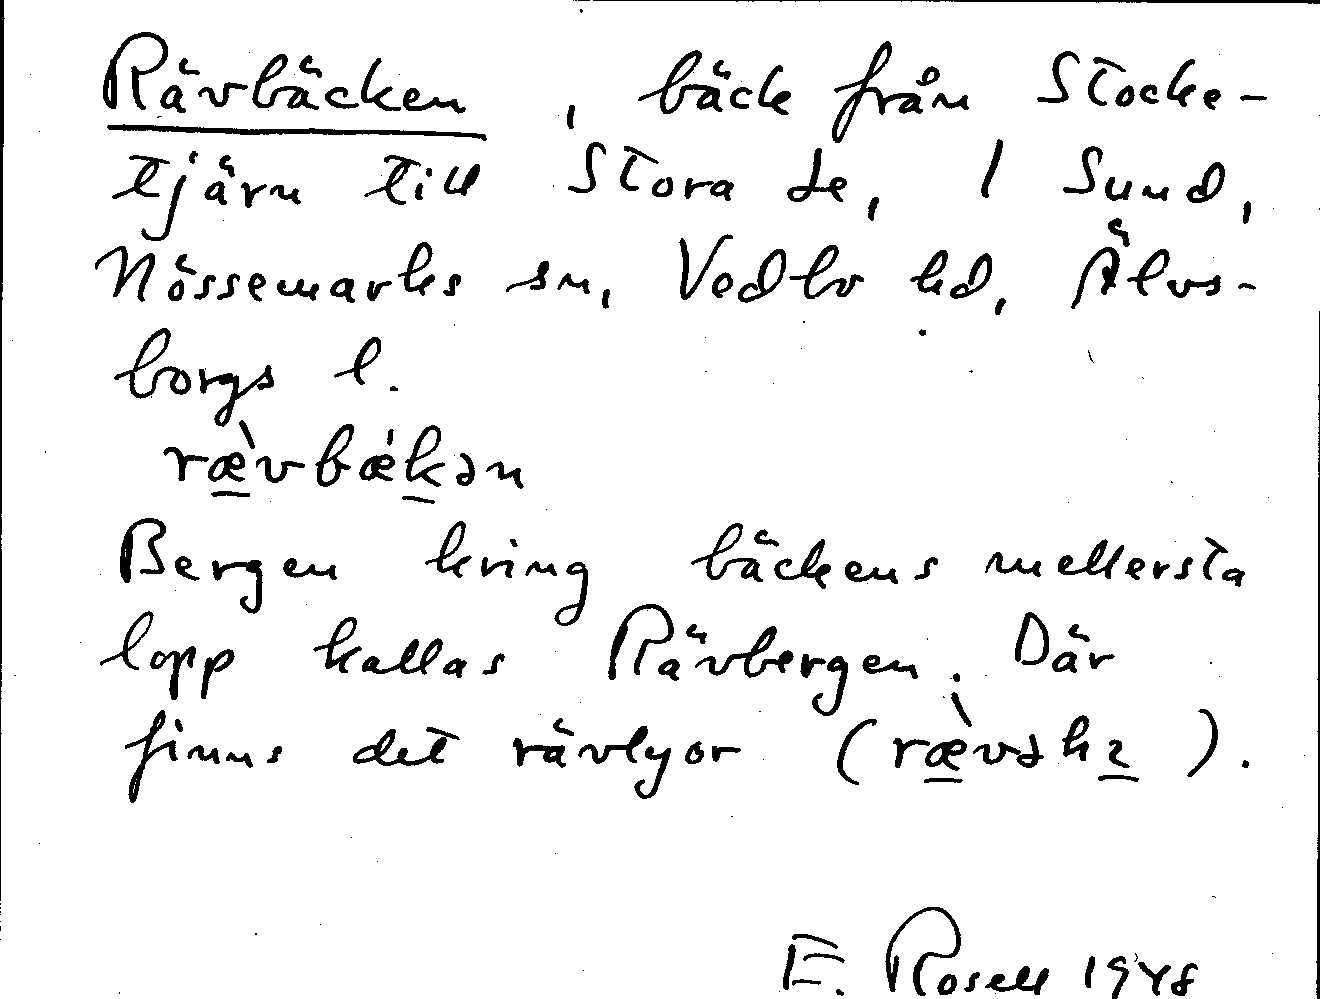 Rävbäcken, bäck från Stocke-
tjärn till Stora Le, 1 Sund,
Nössemarks sn, Vedbo hd, Älvs-
borgs l.
ræ̀vbækən
Bergen kring bäckens mellersta
lopp kallas Rävbergen. Där
finns det rävlyor
E. Rosell 1948